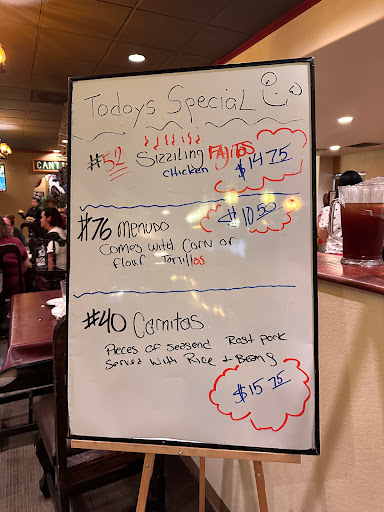 Todays Special
#52 Sizziling Fajitas
chicken $14.75
#76 Menudo $10.50
Comes with Corn or
flour Tortillas
#40 Carnitas
Pieces of seesend Rost pork
Served With Rice + Beans
$15.75